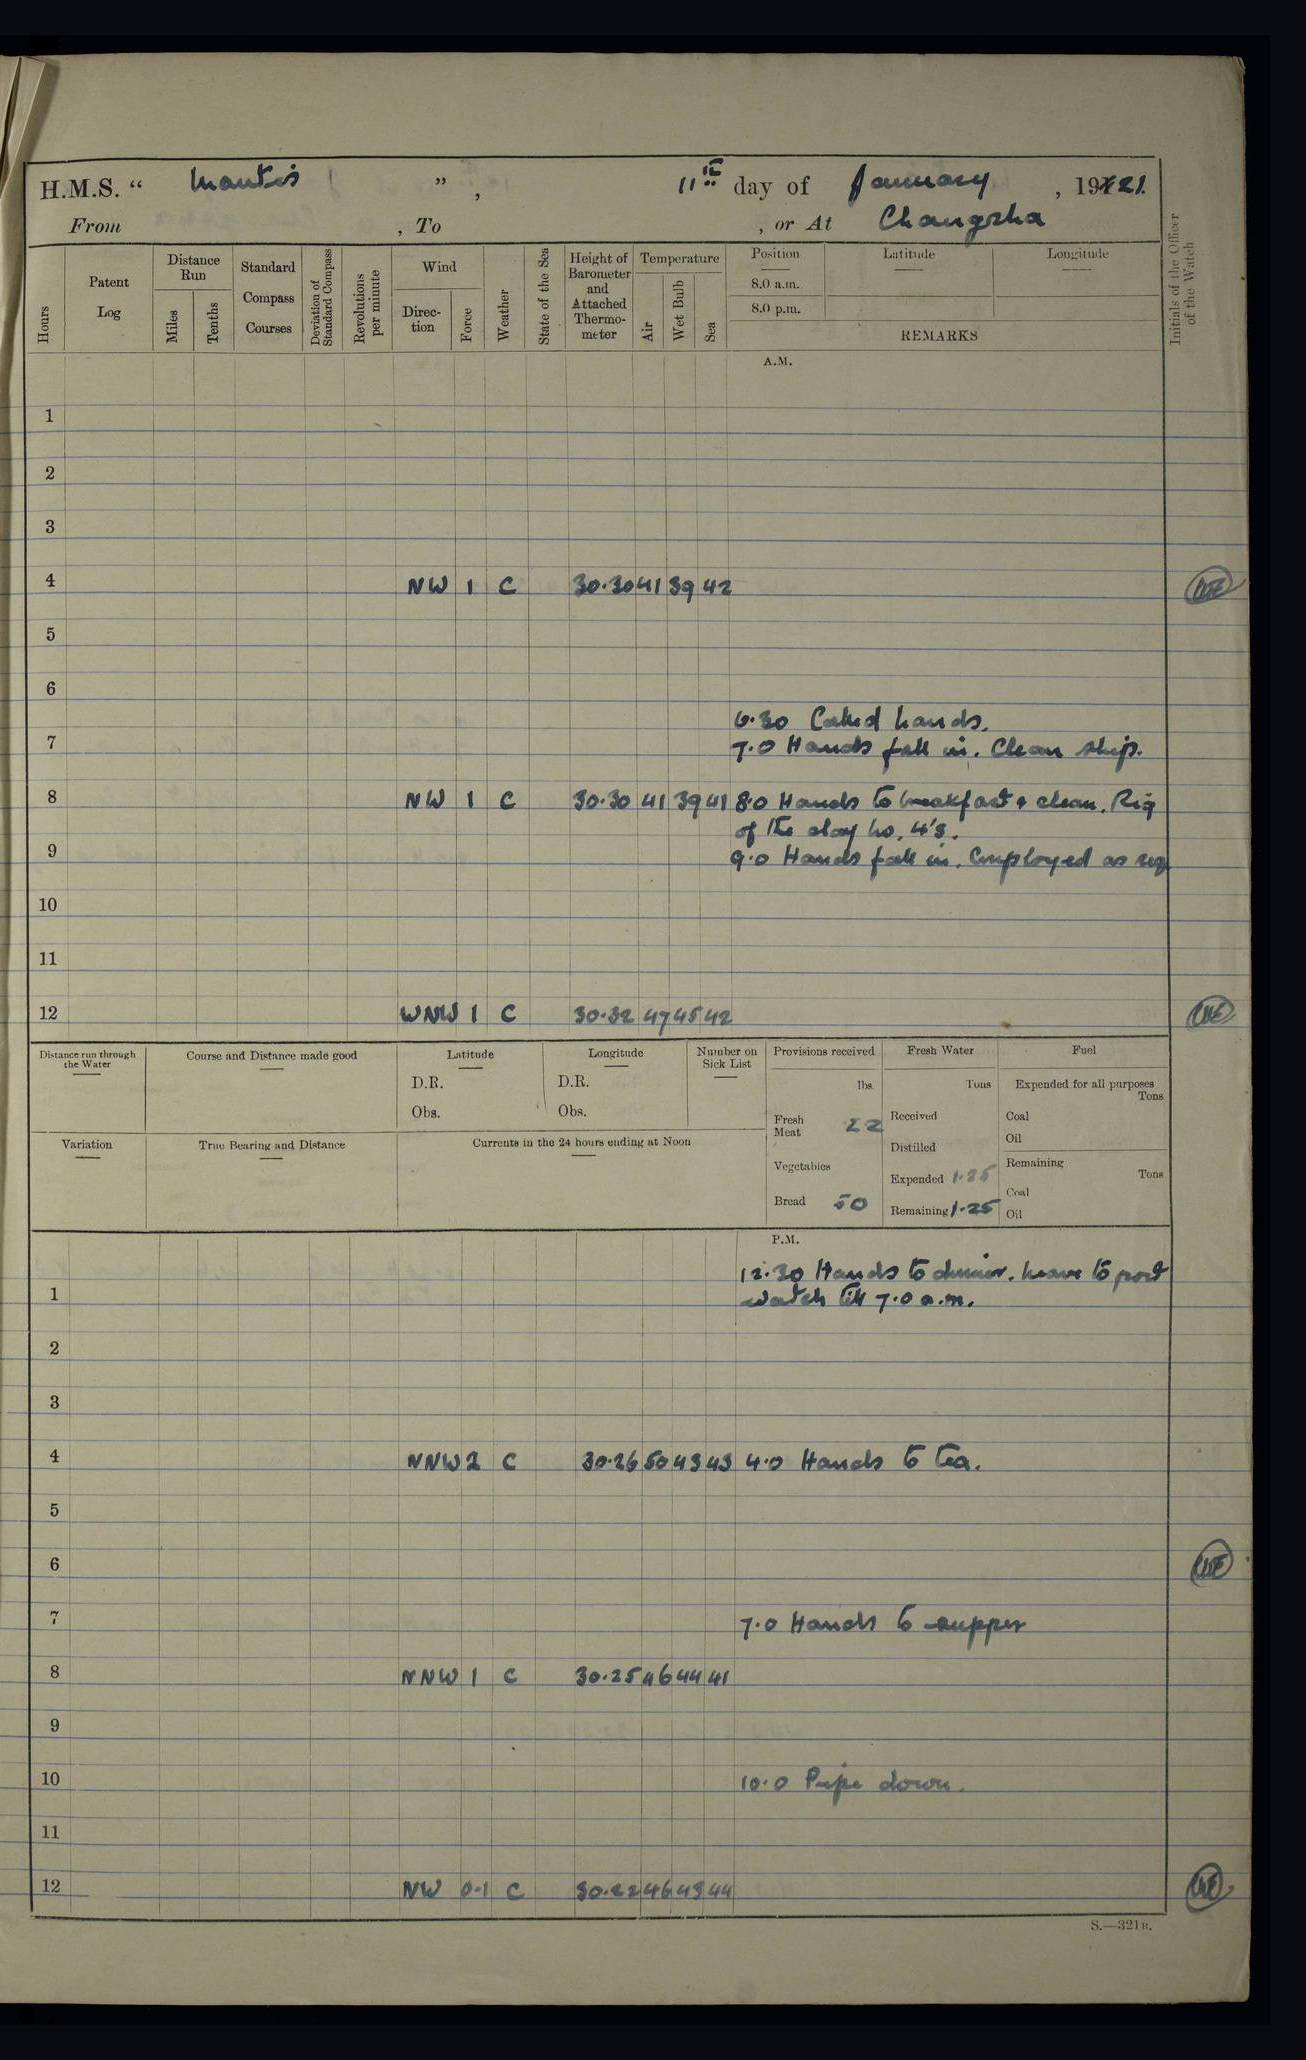 H.M.S. “ Mantis ”, 11th day of January, 1921.
From , To , or At Changsha
Hours
Patent Log
Distance Run
Miles
Tenths
Standard Compass Courses
Deviation of Standard Compass
Revolutions per minute
Wind
Direc- tion
Force
Weather
State of the Sea
Height of Barometer and Attached Thermo- meter
Temperature
Air
Wet Bulb
Sea
Position
8.0 a.m.
8.0 p.m.
Latitude
Longitude
REMARKS
Initials of the Officer of the Watch
A.M.
1
2
3
4 NW 1 C 30.30 41 39 42
5
6
6.30 Called hands.
7 7.0 Hands fall in. Clean ship.
8 NW 1 C 30.30 41 39 41 8.0 Hands to breakfast & clean. Rig
of the day No. 4's.
9 9.0 Hands fall in. Employed as req
10
11
12 WNW 1 C 30.32 47 45 42
Distance run through the Water
Course and Distance made good
Latitude
D.R.
Obs.
Longitude
D.R.
Obs.
Number on Sick List
Provisions received
lbs.
Fresh Meat 22
Vegetables
Bread 50
Fresh Water
Tons
Received
Distilled
Expended 1.25
Remaining 1.25
Fuel
Expended for all purposes
Tons
Coal
Oil
Remaining
Tons
Coal
Oil
Variation
True Bearing and Distance
Currents in the 24 hours ending at Noon
P.M.
12.30 Hands to dinner. Leave to port
1 watch till 7.0 a.m.
2
3
4 NNW 2 C 30.26 50 43 43 4.0 Hands to tea.
5
6
7 7.0 Hands to supper
8 NNW 1 C 30.25 46 44 41
9
10 10.0 Pipe down.
11
12 NW 0.1 C 30.22 46 43 44
S.—321B.